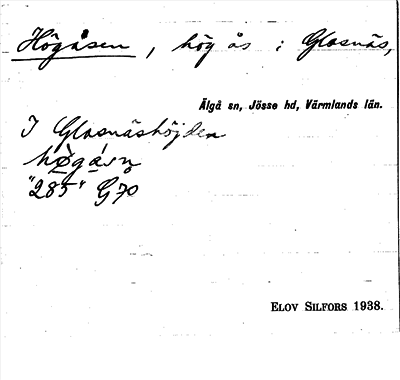 Högåsen, hög ås i Glasnäs,
Älgå sn, Jösse hd, Värmlands län.
I Glasnäshöjden
høgåsn
"285" G70
ELOV SILFORS 1938.